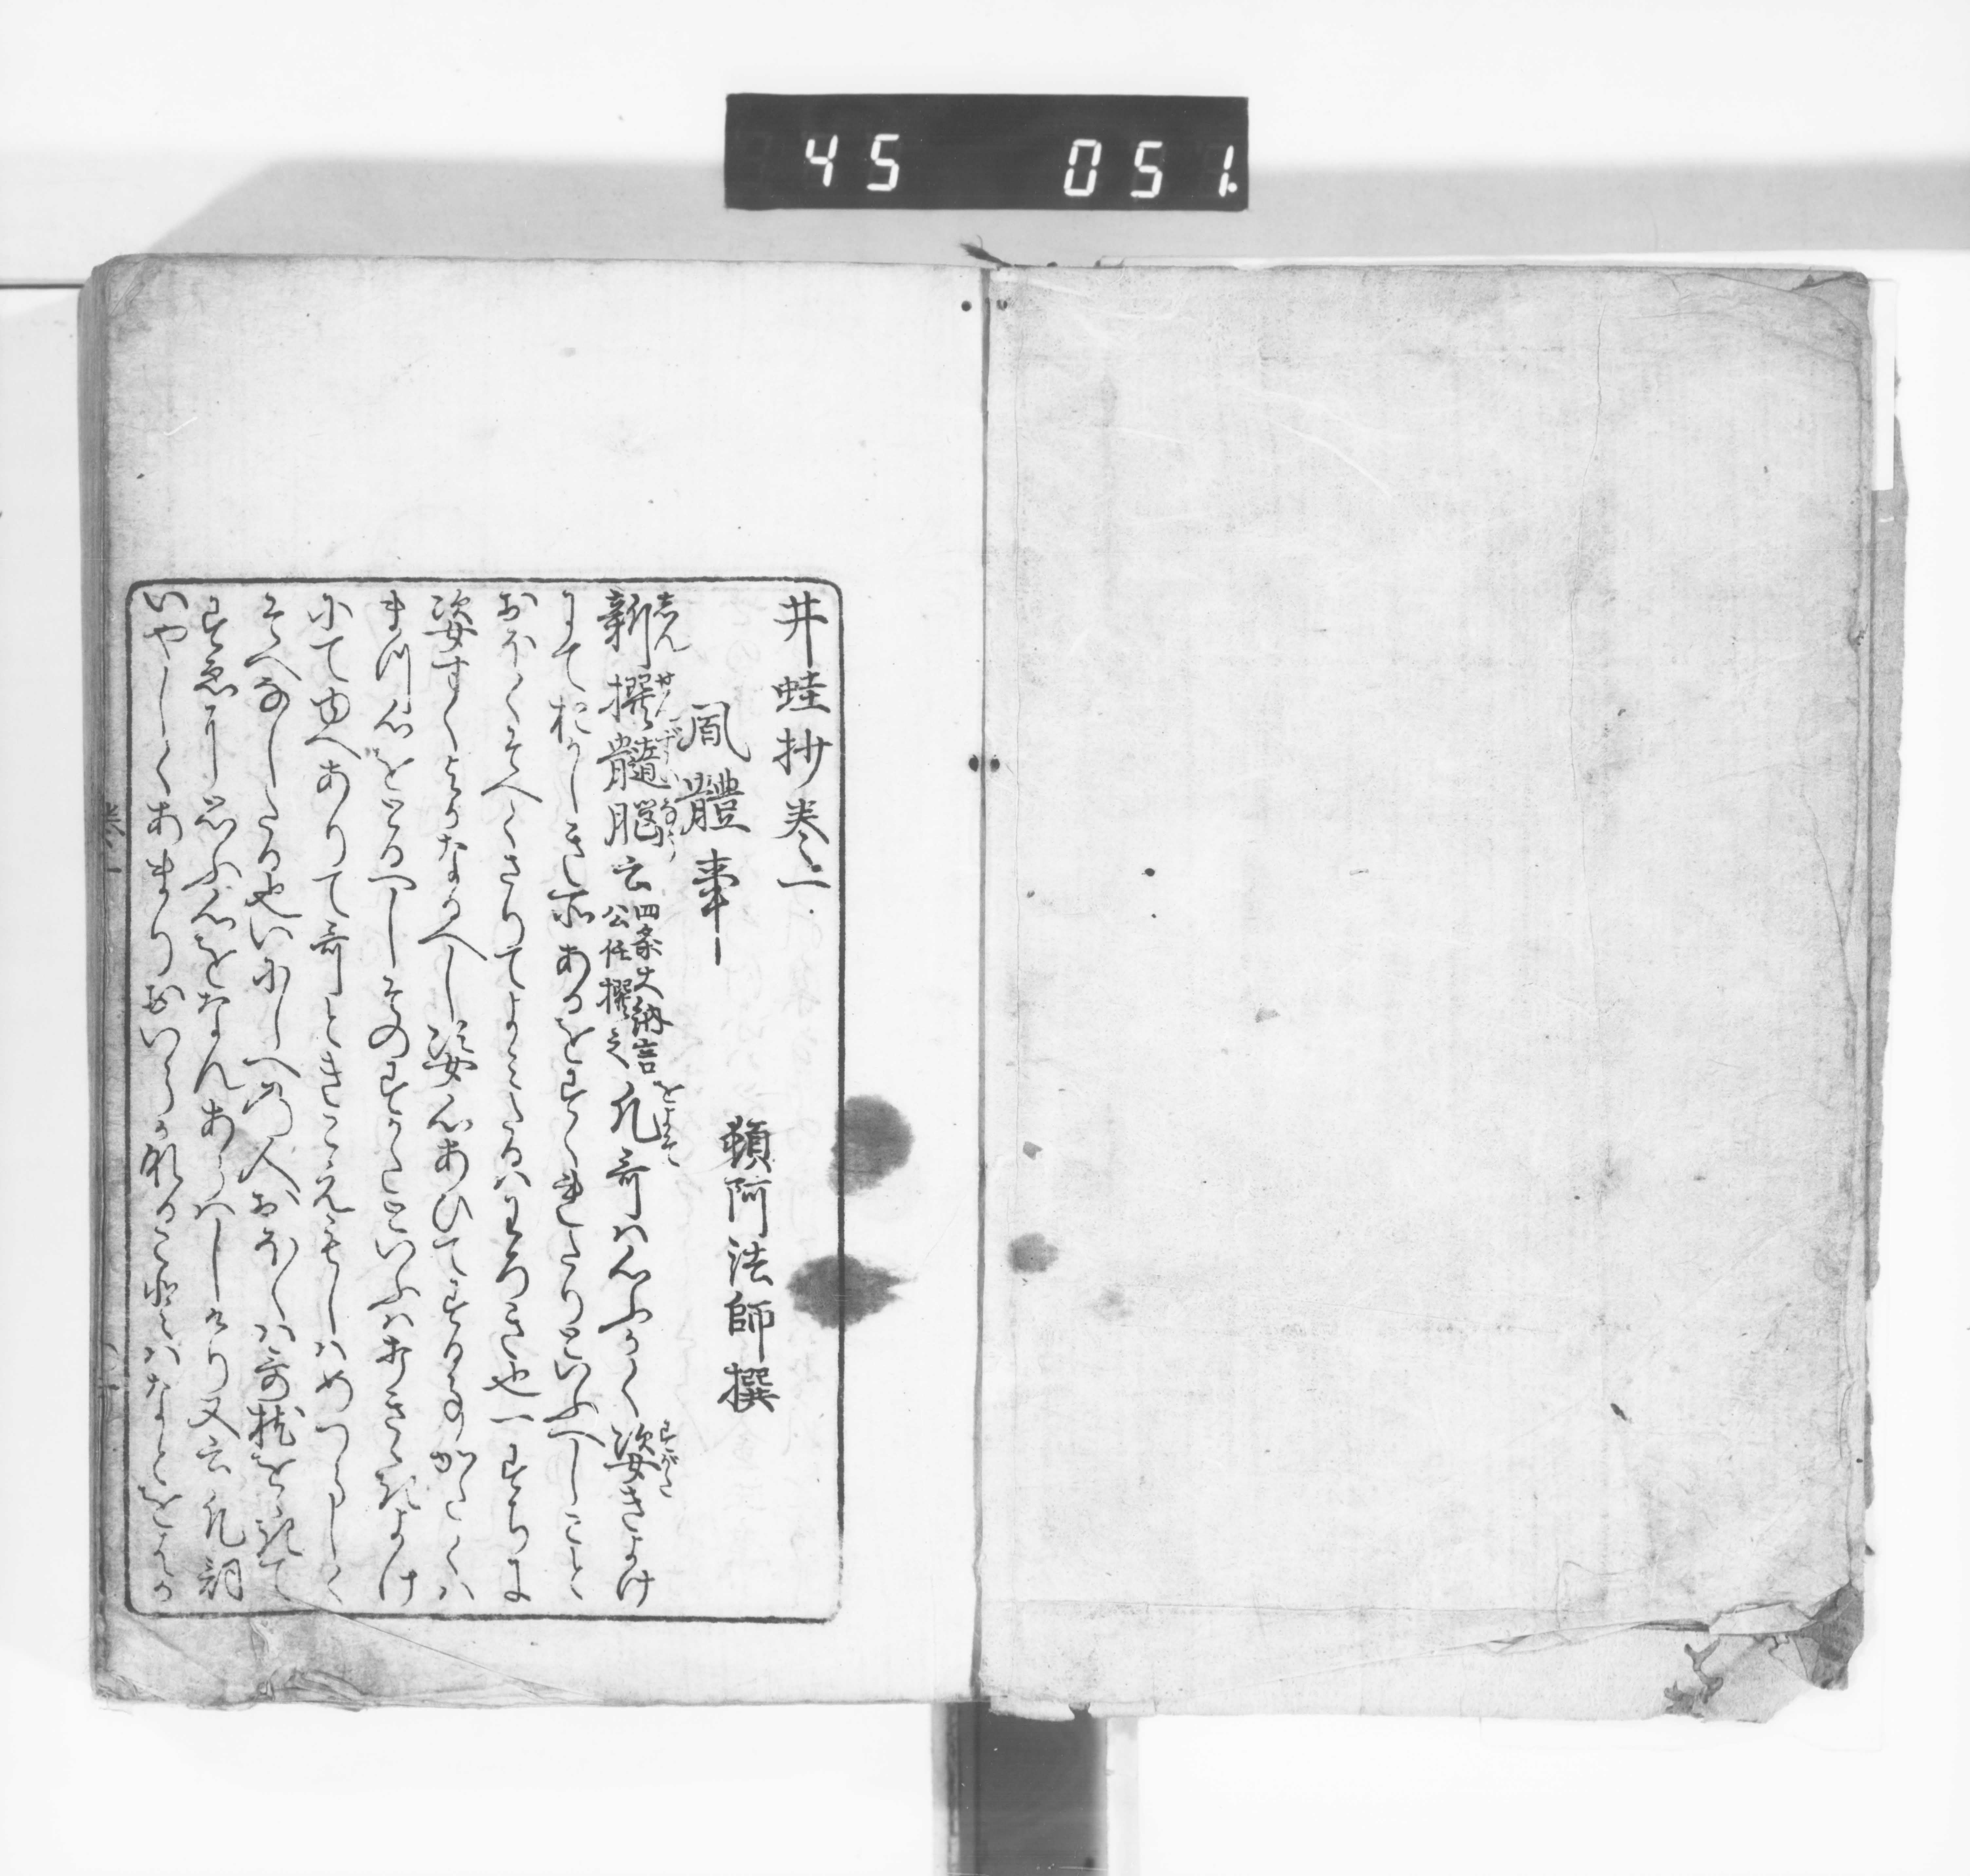 45 051.
井蛙抄卷一
頓阿法師撰
風體事
新撰髄脳云四条大納言公任撰之凡哥は心ふかく姿きよけ
にておかしき所あるをすくれたりといふへしことく
おほくそへくさりてよみたるはわろき也一すちに
姿すくよかなるへし姿心あひてする事かたくは
まつ心をとるへしそのすかたといふはまきゝきよけ
にてゆへありて哥ときこえもしはめつらしく
そへなとしたる也いにしへの人おほくは哥枕を置て
すゑにし思ふ心をなんあらはしける又云凡詞
いやしくあまりおいらかなることはなとをよく